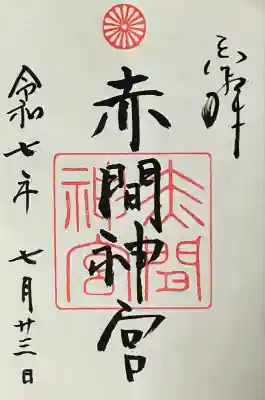 奉拝
赤間神宮
赤間神宮
令和七年 七月廿三日